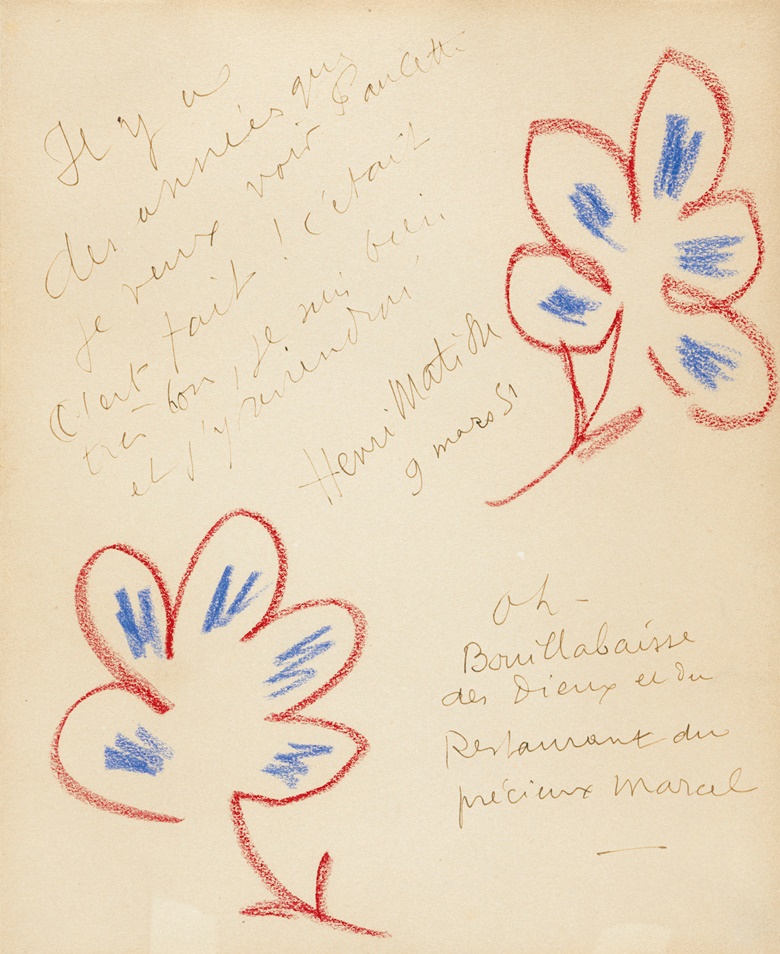 Il y a
des années que
je veux voir Paulette
C'est fait ! C'était
très bon, je suis bien
et j'y reviendrai
Henri Matisse
9 mars 51
Oh -
Bouillabaisse
des Dieux et du
Restaurant du
précieux Marcel